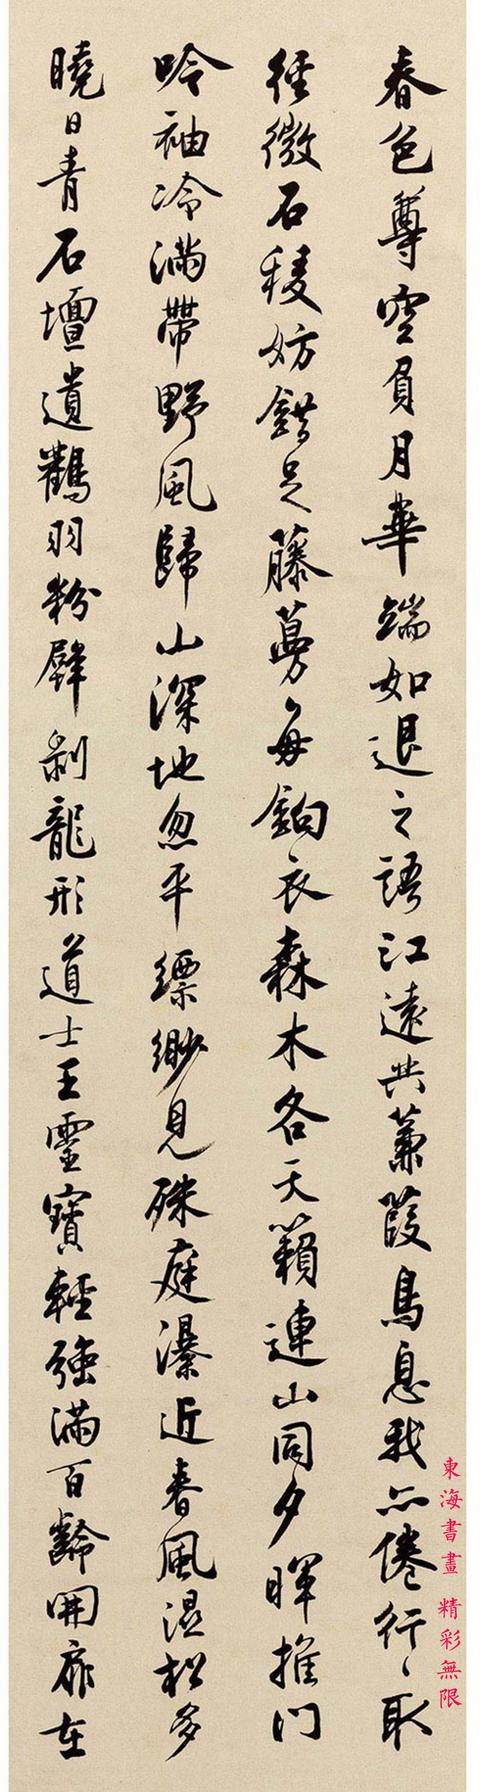 春色尊空負月華端如退之語江遠共蒹葭鳥息我亦倦行〻取
徑微石稜妨錯足藤蔓每鉤衣森木各天籟連山同夕暉推門
吟袖冷滿帶野風歸山深地忽平縹緲見殊庭瀑近春風濕松多
曉日青石壇遺鶴羽粉壁剝龍形道士王靈寶輕強滿百齡開扉在
東海書畫 精彩無限